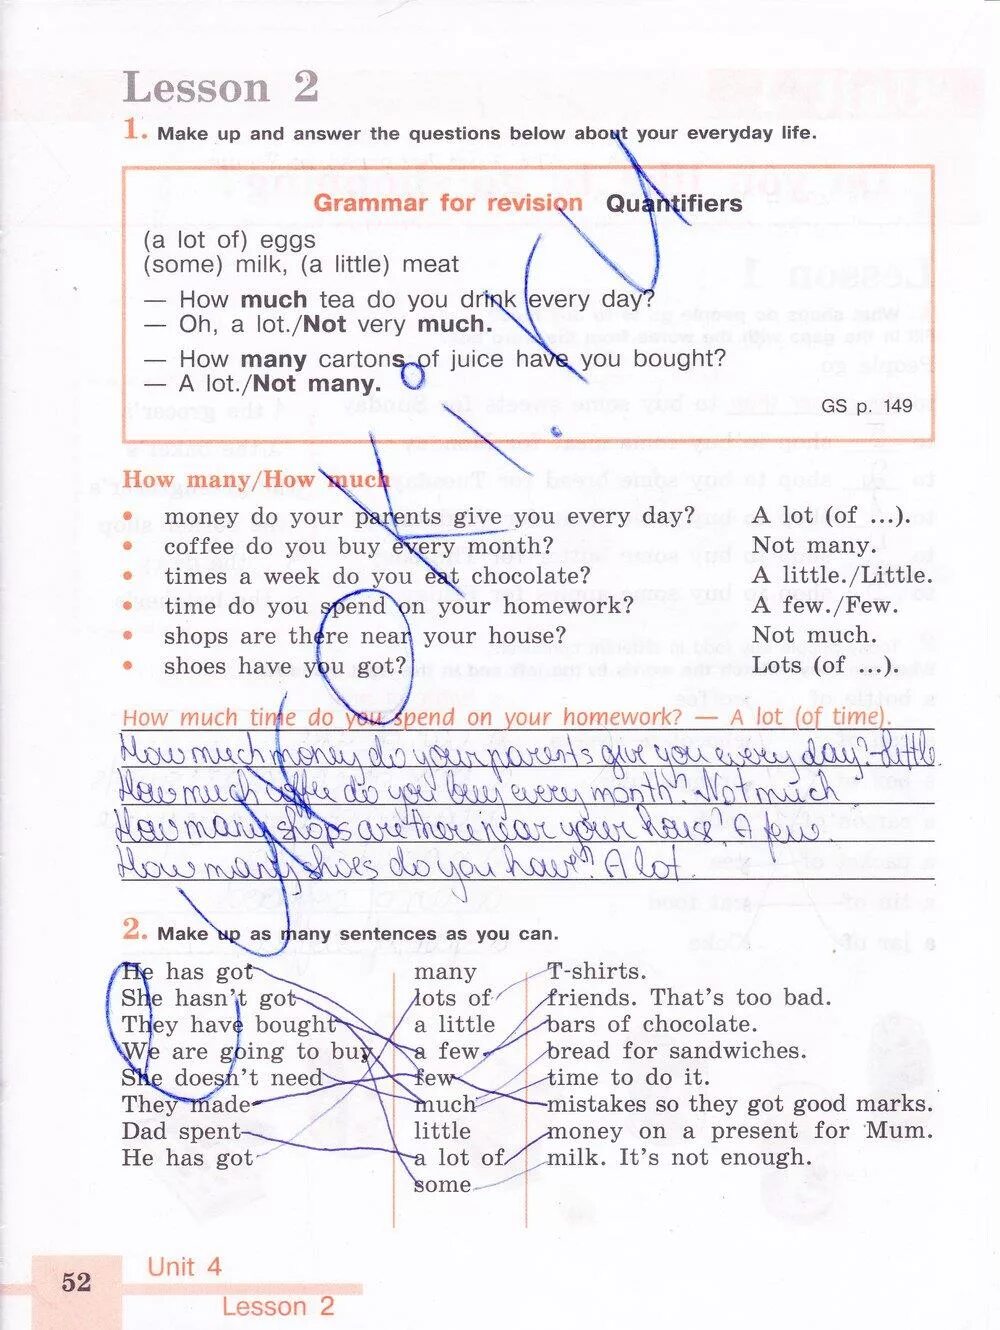 Lesson 2
1. Make up and answer the questions below about your everyday life.
Grammar for revision Quantifiers
(a lot of) eggs
(some) milk, (a little) meat
— How much tea do you drink every day?
— Oh, a lot./Not very much.
— How many cartons of juice have you bought?
— A lot./Not many.
GS p. 149
How many/How much
• money do your parents give you every day? A lot (of ...).
• coffee do you buy every month? Not many.
• times a week do you eat chocolate? A little./Little.
• time do you spend on your homework? A few./Few.
• shops are there near your house? Not much.
• shoes have you got? Lots (of ...).
How much time do you spend on your homework? — A lot (of time).
How much money do your parents give you every day? - Little.
How much coffee do you buy every month? Not much
How many shops are there near your house? A few
How many shoes do you have? A lot.
2. Make up as many sentences as you can.
He has got many T-shirts.
She hasn't got lots of friends. That's too bad.
They have bought a little bars of chocolate.
We are going to buy a few bread for sandwiches.
She doesn't need few time to do it.
They made much mistakes so they got good marks.
Dad spent little money on a present for Mum.
He has got a lot of milk. It's not enough.
some
52 Unit 4
Lesson 2